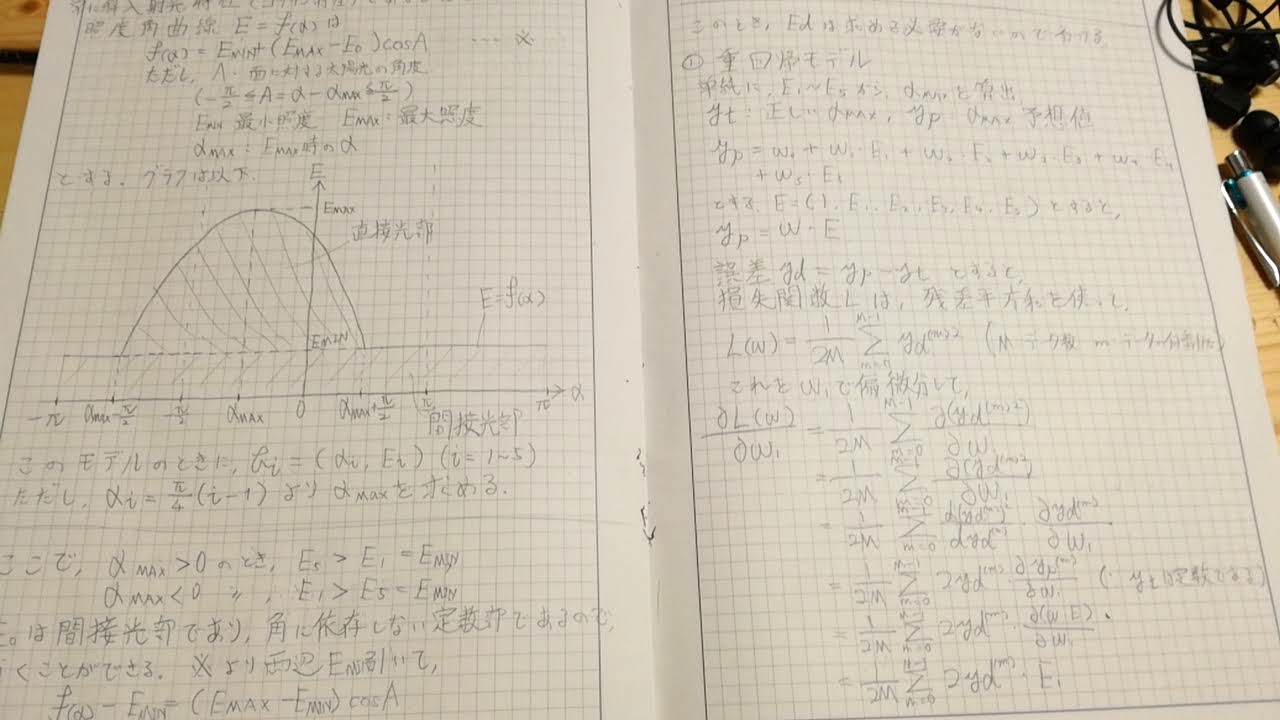 照度角曲線 E=f(α)は
f(α)=EMIN+(EMAX-E0)cosA ‥‥ ※
ただし, A:面に対する太陽光の角度
(-π/2≦A=α-αMAX≦π/2)
EMIN 最小照度 EMAX:最大照度
αMAX:EMAX時のα
とする. グラフは以下.
E
EMAX
直接光部
E=f(α)
EMIN
-π αMAX-π/2 -π/2 αMAX 0 αMAX+π/2 π/2 π α
間接光部
このモデルのときに, =(αi, Ei) (i=1~5)
ただし, αi=π/4(i-1) より αMAXを求める.
ここで, αMAX>0のとき, E5>E1=EMIN
αMAX<0 〃, E1>E5=EMIN
E0は間接光部であり, 角に依存しない定数部であるので,
くことができる. ※より両辺EMIN引いて,
f(α)-EMIN=(EMAX-EMIN)cosA
このとき, Edは求める必要がないので
① 重回帰モデル
単純に, E1~E5から, αMAXを算出
yt:正しいαMAX, yp αMAX予想値
yp=w0+w1·E1+w2·E2+w3·E3+w4·E4
+w5·E5
とする. E=(1, E1, E2, E3, E4, E5)とすると,
yp=w·E
誤差 yd=yp-yt とすると,
損失関数Lは, 残差平方和を使って,
L(w)=1/2M Σ[m=0, M-1] yd(m)2 (M:データ数 m:データの
これをw1で偏微分して,
∂L(w)/∂w1=1/2M Σ[m=0, M-1] ∂(yd(m)2)/∂w1
=1/2M Σ[m=0, M-1] ∂(yd(m))2/∂w1
=1/2M Σ[m=0, M-1] d(yd(m))2/dyd(m)·∂yd(m)/∂w1
=1/2M Σ[m=0, M-1] 2yd(m)·∂yp(m)/∂w1 (∵ytは定数である)
=1/2M Σ[m=0, M-1] 2yd(m)·∂(w·E)/∂w1
=1/2M Σ[m=0, M-1] 2yd(m)·E1